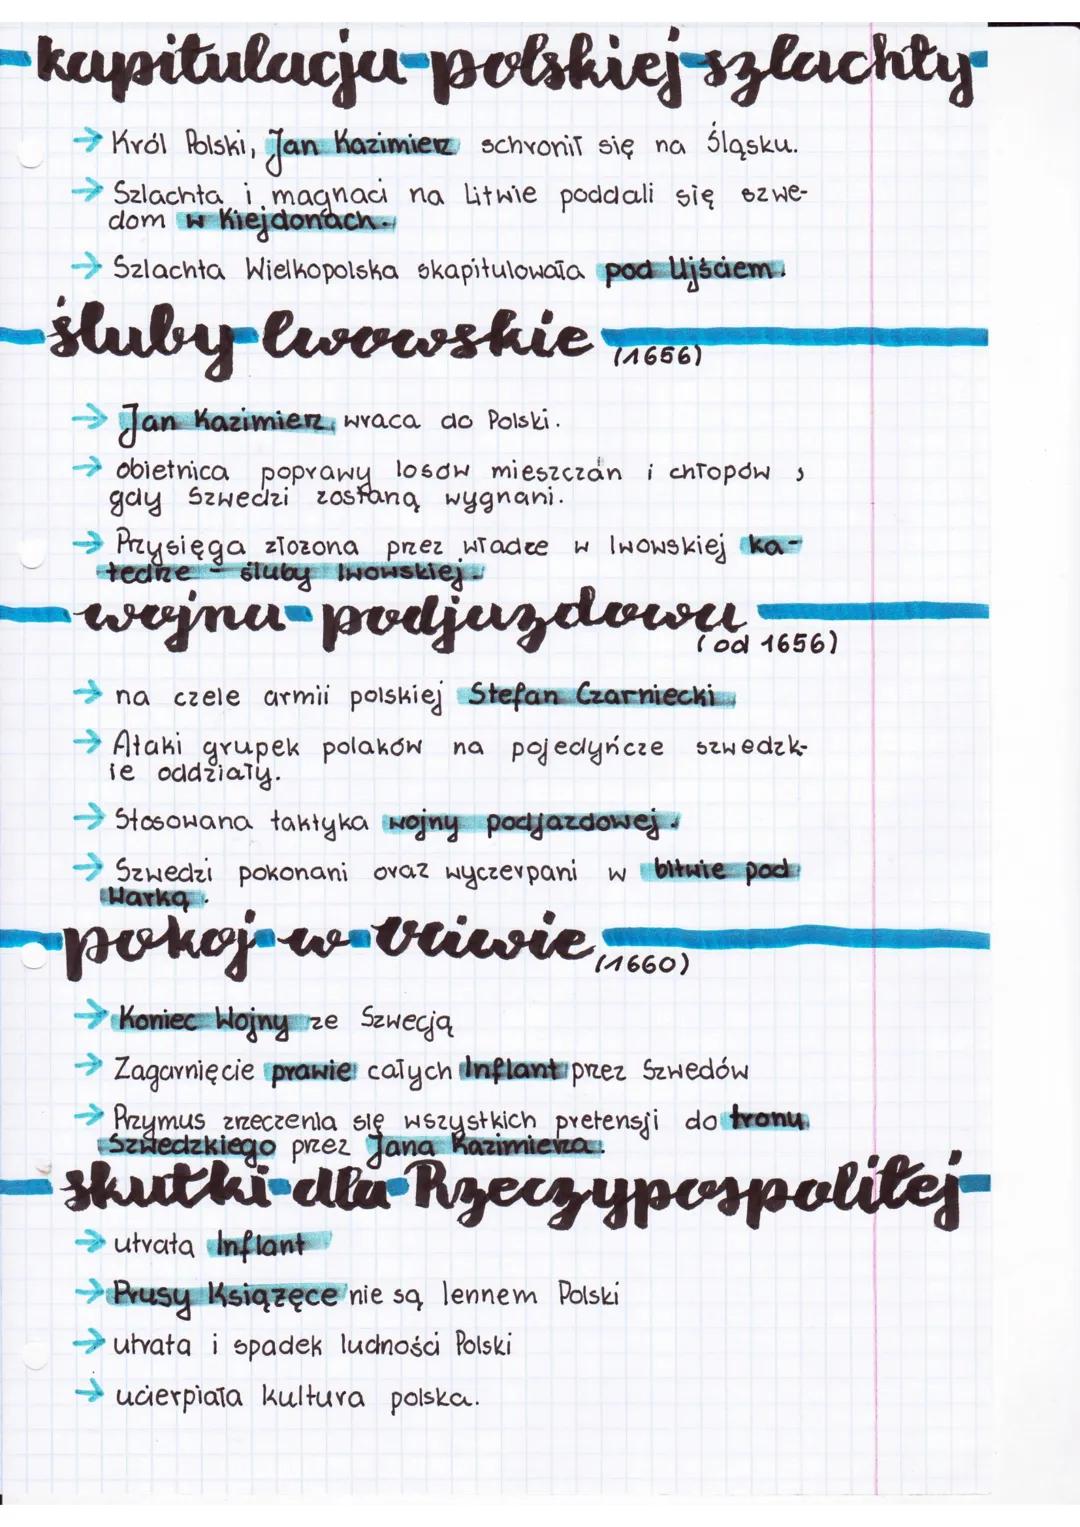 kapitulacja polskiej szlachty
→ Król Polski, Jan Kazimierz schronił się na Śląsku.
→ Szlachta i magnaci na Litwie poddali się szwe-
dom w Kiejdonach.
→ Szlachta Wielkopolska skapitulowała pod Ujściem.
śluby lwowskie (1656)
→ Jan Kazimierz wraca do Polski.
→ obietnica poprawy losów mieszczan i chłopów,
gdy Szwedzi zostaną wygnani.
→ Przysięga złożona przez władce w lwowskiej ka-
tedrze - śluby lwowskiej.
wojna podjazdowa (od 1656)
→ na czele armii polskiej Stefan Czarniecki
→ Ataki grupek polaków na pojedyńcze szwedzk-
ie oddziały.
→ Stosowana taktyka wojny podjazdowej.
→ Szwedzi pokonani oraz wyczerpani w bitwie pod
Warką.
pokoj w Oliwie (1660)
→ Koniec Wojny ze Szwecją
→ Zagarnięcie prawie całych Inflant przez Szwedów
→ Przymus zrzeczenia się wszystkich pretensji do tronu
Szwedzkiego przez Jana Kazimierza.
skutki dla Rzeczypospolitej
→ utrata Inflant
→ Prusy Książęce nie są lennem Polski
→ utrata i spadek ludności Polski
→ ucierpiała kultura polska.